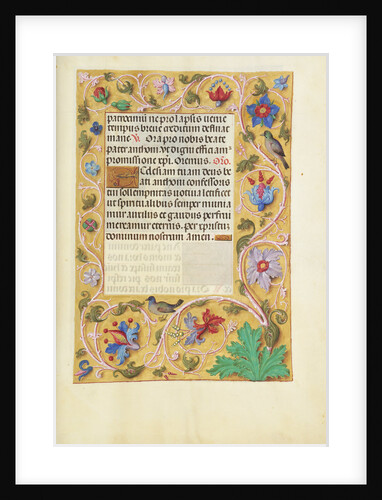 patrociniū ne prolapsis vite
tempus breve creditum defleat
mane. V. Ora pro nobis beate
pater anthoni. Ut digni efficiam
promissione xpi. Oremus. Oro.
Ecclesiam tuam deus be
ati anthonii confessoris
tui sollempnitas votiva letificet
ut spiritalibus semper munia
tur auxiliis et gaudiis perfrui
mereamur eternis. per xpistū
dominum nostrum Amen.